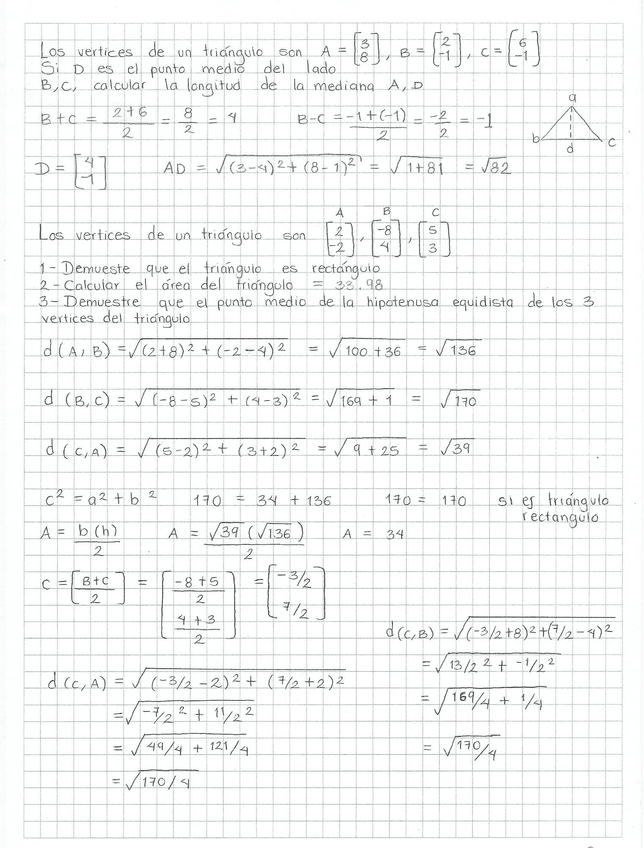 Los vertices de un triángulo son A = [3 8], B = [2 -1], C = [6 -1]
Si D es el punto medio del lado
B,C, calcular la longitud de la mediana A,D
B+C = 2+6/2 = 8/2 = 4 B-C = -1+(-1)/2 = -2/2 = -1
a
b d c
D = [4 -1] AD = √(3-4)² + (8-1)² = √1+81 = √82
A B C
Los vertices de un triángulo son [2 -2], [-8 4], [5 3]
1- Demueste que el triángulo es rectángulo
2- Calcular el área del triángulo = 33.98
3- Demuestre que el punto medio de la hipotenusa equidista de los 3
vertices del triángulo
d(A,B) = √(2+8)² + (-2-4)² = √100+36 = √136
d(B,C) = √(-8-5)² + (4-3)² = √169+1 = √170
d(C,A) = √(5-2)² + (3+2)² = √9+25 = √39
c² = a² + b² 170 = 34 + 136 170 = 170 si es triángulo
rectangulo
A = b(h)/2 A = √39 (√136)/2 A = 34
C = [B+C/2] = [-8+5/2 4+3/2] = [-3/2 7/2]
d(C,B) = √(-3/2+8)²+(7/2-4)²
= √13/2² + -1/2²
= √169/4 + 1/4
= √170/4
d(C,A) = √(-3/2-2)² + (7/2+2)²
= √-7/2² + 11/2²
= √49/4 + 121/4
= √170/4